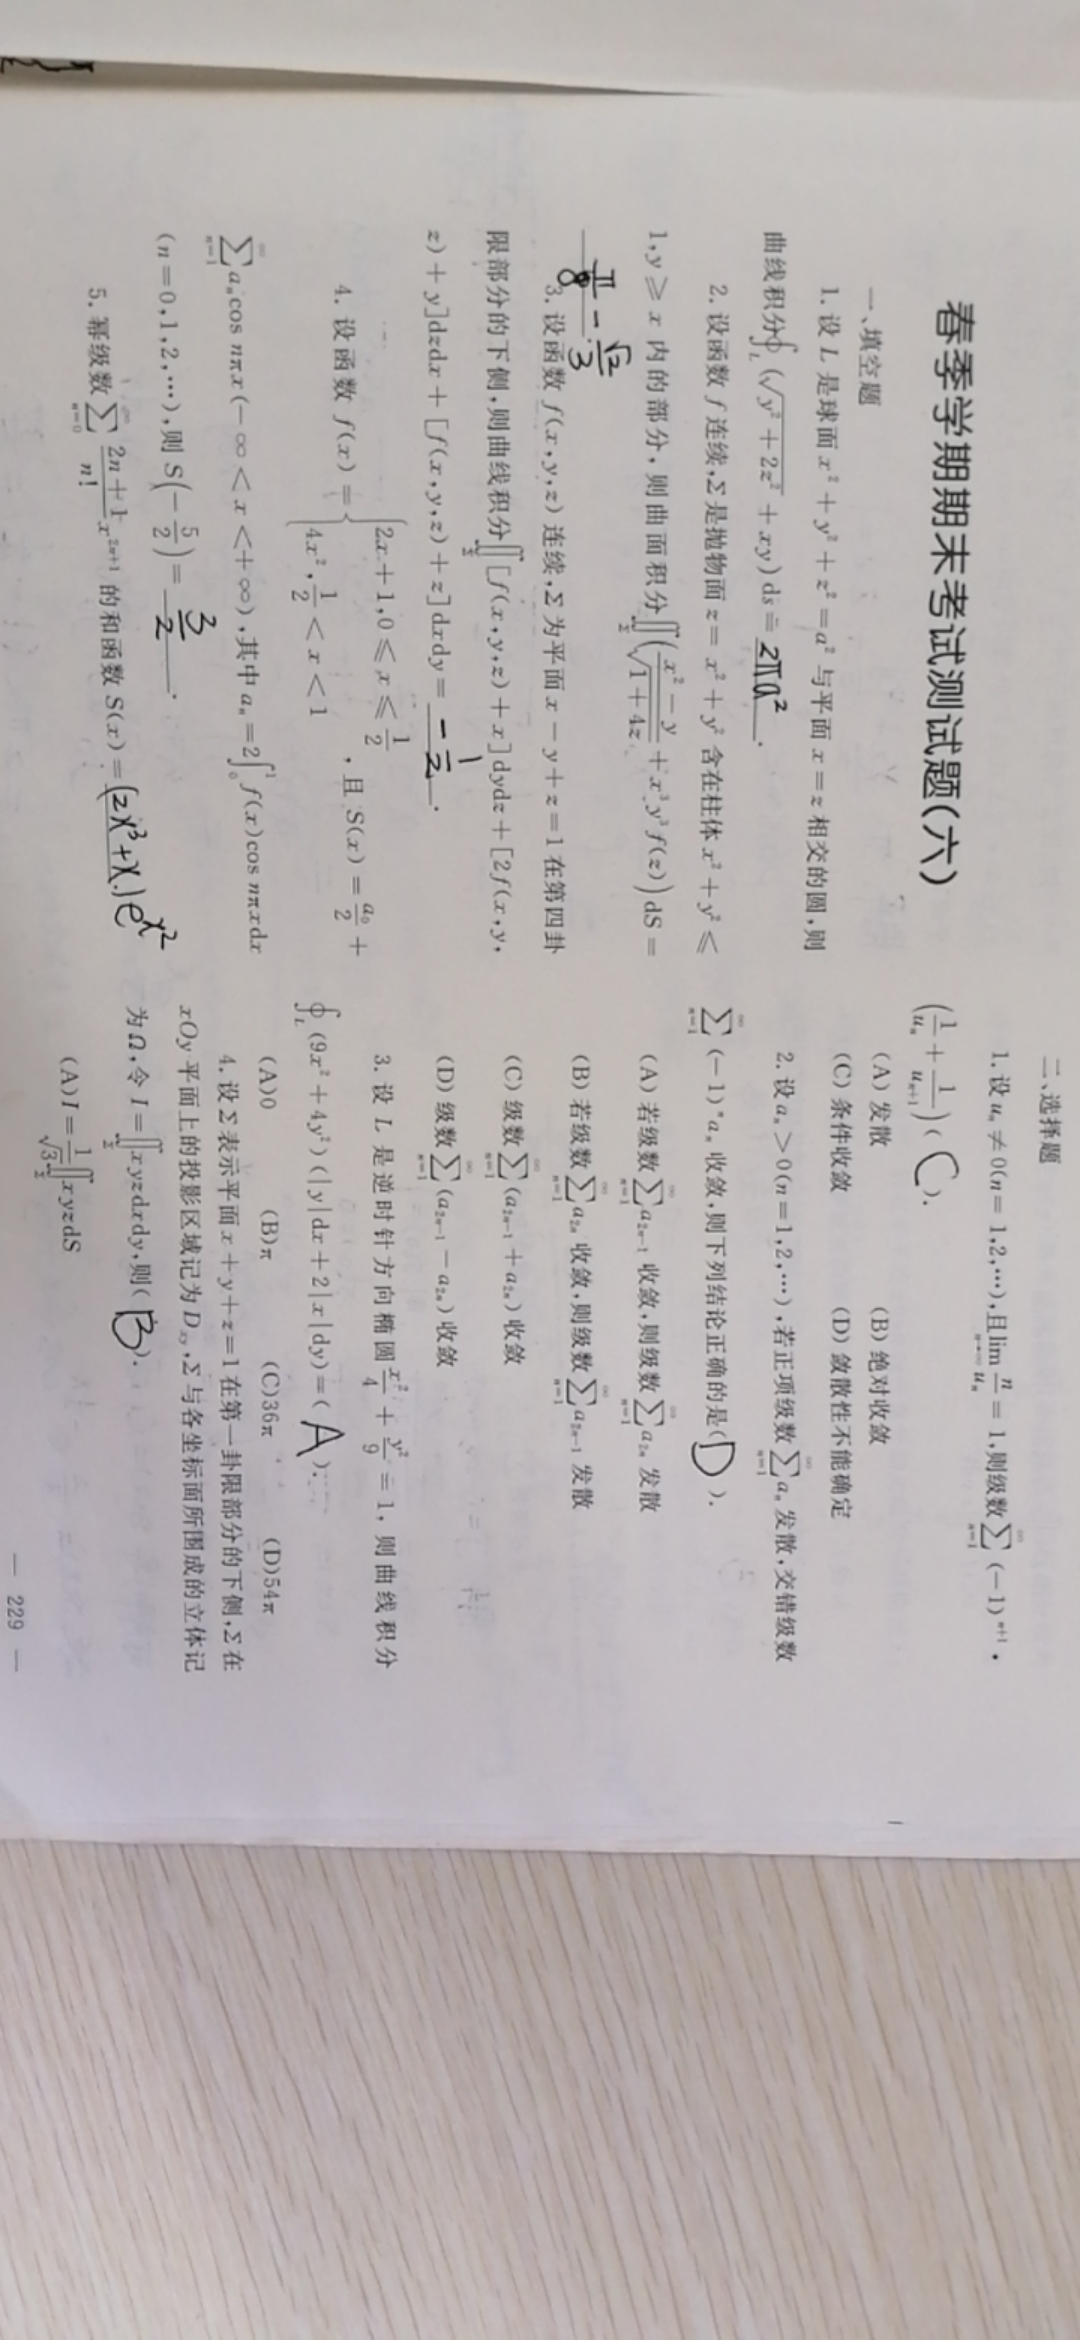 春季学期期末考试测试题(六)
一、填空题
1. 设 L 是球面 x² + y² + z² = a² 与平面 x = z 相交的圆,则
曲线积分∮_L (√(y² + 2z²) + xy) ds = 2πa².
2. 设函数 f 连续,Σ 是抛物面 z = x² + y² 含在柱体 x² + y² ≤
1, y ≥ x 内的部分,则曲面积分∬_Σ ((x² − y)/√(1 + 4z) + x³y³f(z)) dS =
π/8 − √2/3
3. 设函数 f(x,y,z) 连续,Σ 为平面 x − y + z = 1 在第四卦
限部分的下侧,则曲线积分∬_Σ [f(x,y,z) + x]dydz + [2f(x,y,
z) + y]dzdx + [f(x,y,z) + z]dxdy = −1/2.
4. 设函数 f(x) = {2x + 1, 0 ≤ x ≤ 1/2; 4x², 1/2 < x < 1, 且 S(x) = a₀/2 +
∑_{n=1}^{∞} aₙcos nπx(−∞ < x < +∞),其中 aₙ = 2∫₀¹ f(x)cos nπxdx
(n = 0,1,2,⋯),则 S(−5/2) = 3/2.
5. 幂级数 ∑_{n=0}^{∞} (2n + 1)/n! x^{2n+1} 的和函数 S(x) = (2x³+x)e^{x²}
二、选择题
1. 设 uₙ ≠ 0(n = 1,2,⋯),且 lim_{n→∞} n/uₙ = 1,则级数 ∑_{n=1}^{∞} (−1)^{n+1} ·
(1/uₙ + 1/u_{n+1})( C ).
(A) 发散 (B) 绝对收敛
(C) 条件收敛 (D) 敛散性不能确定
2. 设 aₙ > 0(n = 1,2,⋯),若正项级数 ∑_{n=1}^{∞} aₙ 发散,交错级数
∑_{n=1}^{∞} (−1)ⁿaₙ 收敛,则下列结论正确的是( D ).
(A) 若级数 ∑_{n=1}^{∞} a_{2n−1} 收敛,则级数 ∑_{n=1}^{∞} a_{2n} 发散
(B) 若级数 ∑_{n=1}^{∞} a_{2n} 收敛,则级数 ∑_{n=1}^{∞} a_{2n−1} 发散
(C) 级数 ∑_{n=1}^{∞} (a_{2n−1} + a_{2n}) 收敛
(D) 级数 ∑_{n=1}^{∞} (a_{2n−1} − a_{2n}) 收敛
3. 设 L 是逆时针方向椭圆 x²/4 + y²/9 = 1, 则曲线积分
∮_L (9x² + 4y²)(|y|dx + 2|x|dy) = ( A ).
(A)0 (B)π (C)36π (D)54π
4. 设 Σ 表示平面 x + y + z = 1 在第一卦限部分的下侧,Σ 在
xOy 平面上的投影区域记为 D_{xy},Σ 与各坐标面所围成的立体记
为 Ω,令 I = ∬_Σ xyzdxdy,则( B ).
(A) I = 1/√3 ∬_Σ xyzdS
— 229 —